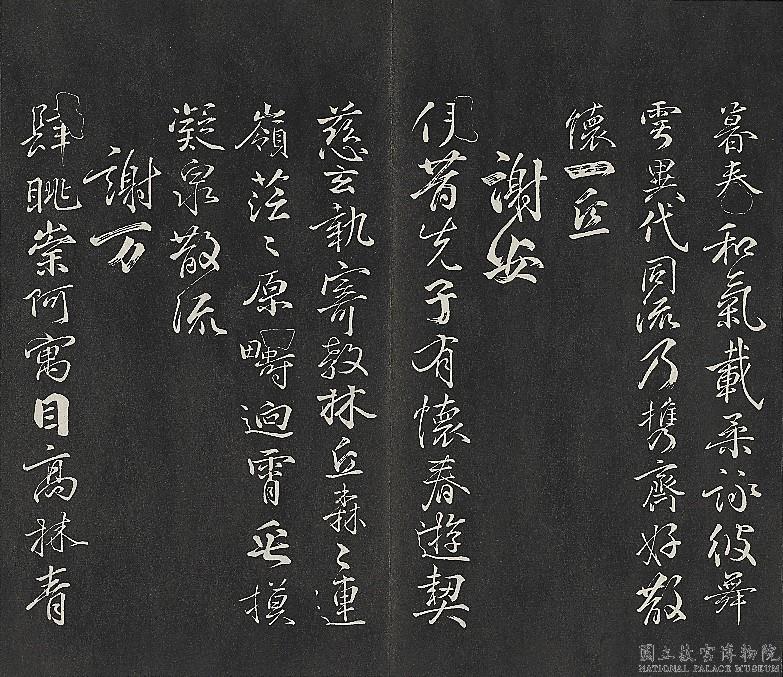 暮春和氣載柔詠彼舞
雩異代同流乃携齊好散
懷一丘
謝安
伊昔先子有懷春遊契
慈玄執寄敖林丘森〻連
嶺茫〻原疇逈霄垂摸
凝泉散流
謝万
肆眺崇阿寓目高林青
國立故宮博物院
NATIONAL PALACE MUSEUM